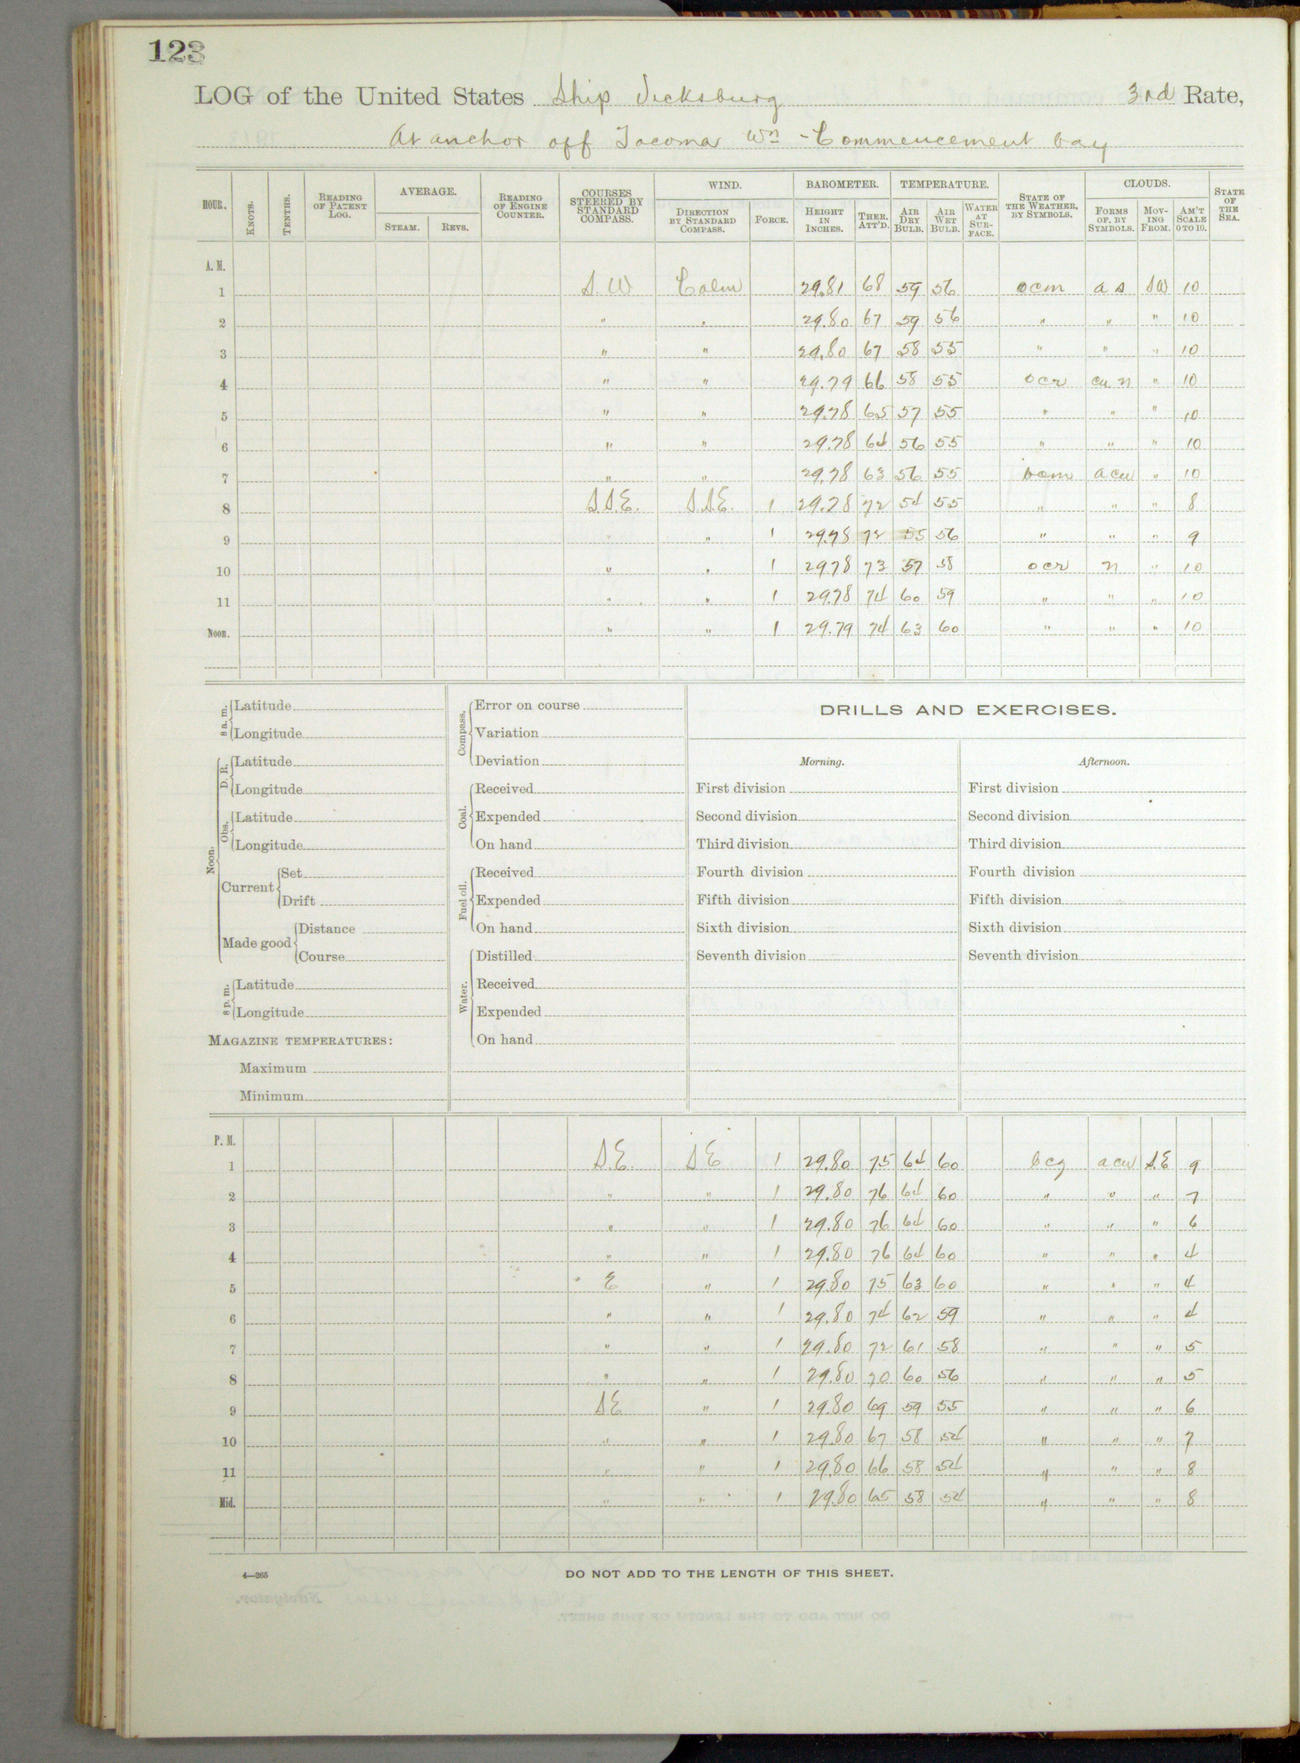 123
LOG of the United States Ship Vicksburg 3rd Rate,
At anchor off Tacoma Wn - Commencement bay
HOUR. KNOTS. TENTHS. READING OF PATENT LOG. AVERAGE. STEAM. REVS. READING OF ENGINE COUNTER. COURSES STEERED BY STANDARD COMPASS. WIND. DIRECTION BY STANDARD COMPASS. FORCE. BAROMETER. HEIGHT IN INCHES. THER. ATT'D. TEMPERATURE. AIR DRY BULB. AIR WET BULB. WATER AT SURFACE. STATE OF THE WEATHER, BY SYMBOLS. CLOUDS. FORMS OF, BY SYMBOLS. MOVING FROM. AM'T SCALE 0 TO 10. STATE OF THE SEA.
A. M.
1 S.W Calm 29.81 68 59 56 ocm a s SW 10
2 " " 29.80 67 59 56 " " " 10
3 " " 29.80 67 58 55 " " " 10
4 " " 29.79 66 58 55 ocr cu. n " 10
5 " " 29.78 65 57 55 " " " 10
6 " " 29.78 64 56 55 " " " 10
7 " " 29.78 63 56 55 bcm a cu " 10
8 S.S.E. S.S.E. 1 29.78 72 54 55 " " " 8
9 " " 1 29.78 72 55 56 " " " 9
10 " " 1 29.78 73 57 58 ocr n " 10
11 " " 1 29.78 74 60 59 " " " 10
Noon. " " 1 29.79 74 63 60 " " " 10
8 a. m. Latitude
Longitude
Noon. D. R. Latitude
Longitude
Obs. Latitude
Longitude
Current Set
Drift
Made good Distance
Course
8 p. m. Latitude
Longitude
MAGAZINE TEMPERATURES:
Maximum
Minimum
Compass. Error on course
Variation
Deviation
Coal. Received
Expended
On hand
Fuel oil. Received
Expended
On hand
Water. Distilled
Received
Expended
On hand
DRILLS AND EXERCISES.
Morning. Afternoon.
First division First division
Second division Second division
Third division Third division
Fourth division Fourth division
Fifth division Fifth division
Sixth division Sixth division
Seventh division Seventh division
P. M.
1 S.E. SE 1 29.80 75 64 60 bcg a cu S.E 9
2 " " 1 29.80 76 64 60 " " " 7
3 " " 1 29.80 76 64 60 " " " 6
4 " " 1 29.80 76 64 60 " " " 4
5 E " 1 29.80 75 63 60 " " " 4
6 " " 1 29.80 74 62 59 " " " 4
7 " " 1 29.80 72 61 58 " " " 5
8 " " 1 29.80 70 60 56 " " " 5
9 SE " 1 29.80 69 59 55 " " " 6
10 " " 1 29.80 67 58 54 " " " 7
11 " " 1 29.80 66 58 54 " " " 8
Mid. " " 1 29.80 65 58 54 " " " 8
4—265
DO NOT ADD TO THE LENGTH OF THIS SHEET.